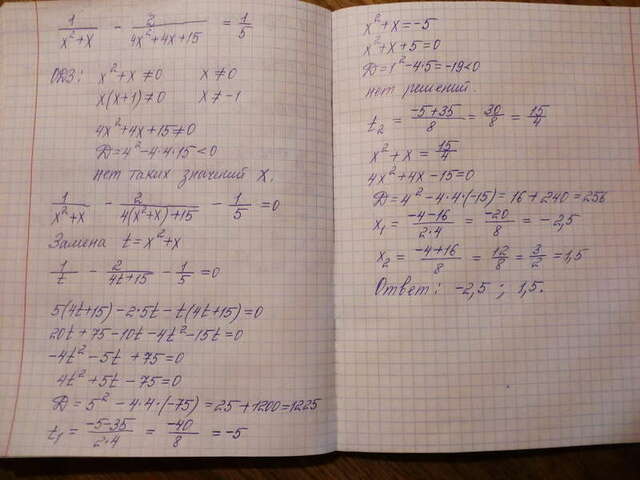 1/(x²+x) - 2/(4x²+4x+15) = 1/5
ОДЗ: x²+x≠0 x≠0
x(x+1)≠0 x≠-1
4x²+4x+15≠0
D=4²-4·4·15<0
нет таких значений x.
1/(x²+x) - 2/(4(x²+x)+15) - 1/5 =0
Замена t=x²+x
1/t - 2/(4t+15) - 1/5 =0
5(4t+15)-2·5t-t(4t+15)=0
20t+75-10t-4t²-15t=0
-4t²-5t+75=0
4t²+5t-75=0
D=5²-4·4·(-75)=25+1200=1225
t₁= (-5-35)/(2·4) = -40/8 = -5
x²+x=-5
x²+x+5=0
D=1²-4·5=-19<0
нет решений.
t₂ = (-5+35)/8 = 30/8 = 15/4
x²+x= 15/4
4x²+4x-15=0
D=4²-4·4·(-15)=16+240=256
x₁= (-4-16)/(2·4) = -20/8 = -2,5
x₂= (-4+16)/8 = 12/8 = 3/2 = 1,5
Ответ: -2,5 ; 1,5.